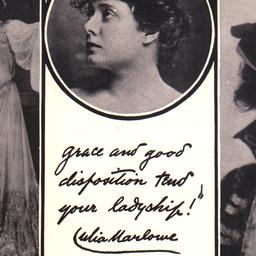 grace and good
disposition tend
your ladyship!"
Julia Marlowe